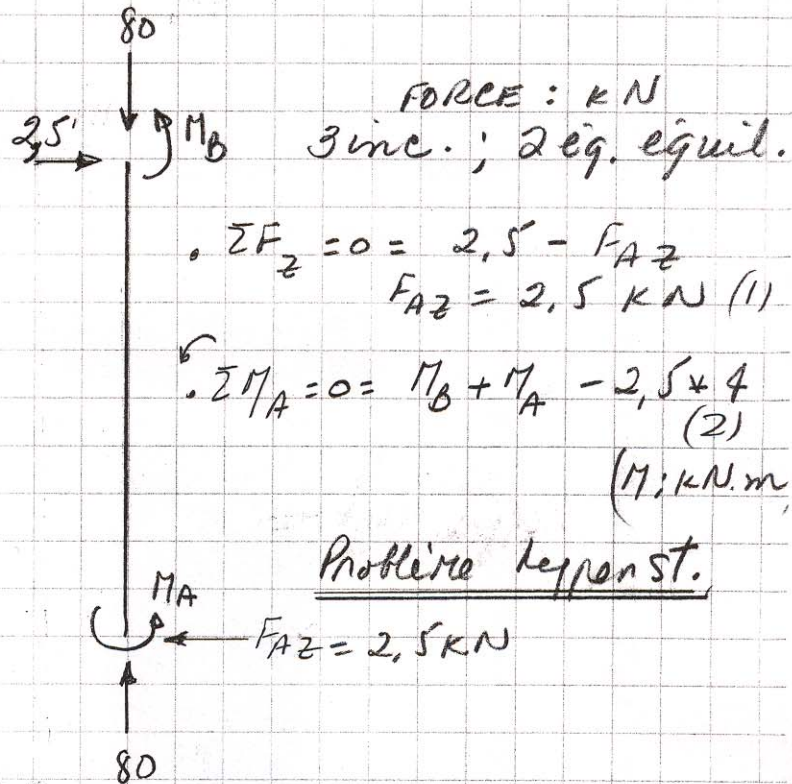 80
FORCE : KN
2,5 M_B 3 inc. ; 2 éq. équil.
. ΣF_Z = 0 = 2,5 - F_AZ
F_AZ = 2,5 KN (1)
. ΣM_A = 0 = M_B + M_A - 2,5 * 4
(2)
(M : KN.m
Problème hyperst.
M_A
F_AZ = 2,5 KN
80